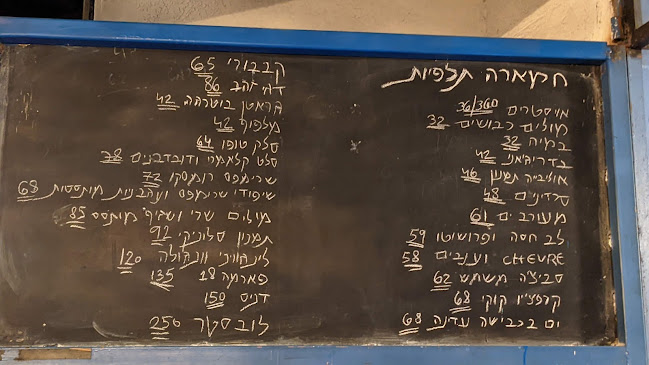 חמארה תלפיות
אויסטרים 36/360
מולים כבושים 32
במיה 32
בדריג'אני 42
אוליביה תמנון 46
סרדינים 48
מעורבים 61
לב חסה ופרושיטו 59
CHEVRE וענבים 58
סביצ'ה משתש 62
קרפצ'יו קוקי 68
ים בכבישה עדינה 68
קבבורי 65
דג זהב 86
בראטן בוטרגה 42
מלפוף 42
סלק טופו 64
סלט קלאמרי ודובדבנים 78
שרימפס רומסקו 72
שיפודי שרימפס ועגבניות מותססות 68
מולים שרי ושאיפ מותסס 85
תמנון סלוניקי 92
לינגוויני וונגולה 120
פארמה 18 135
דניס 150
לובסטר 250